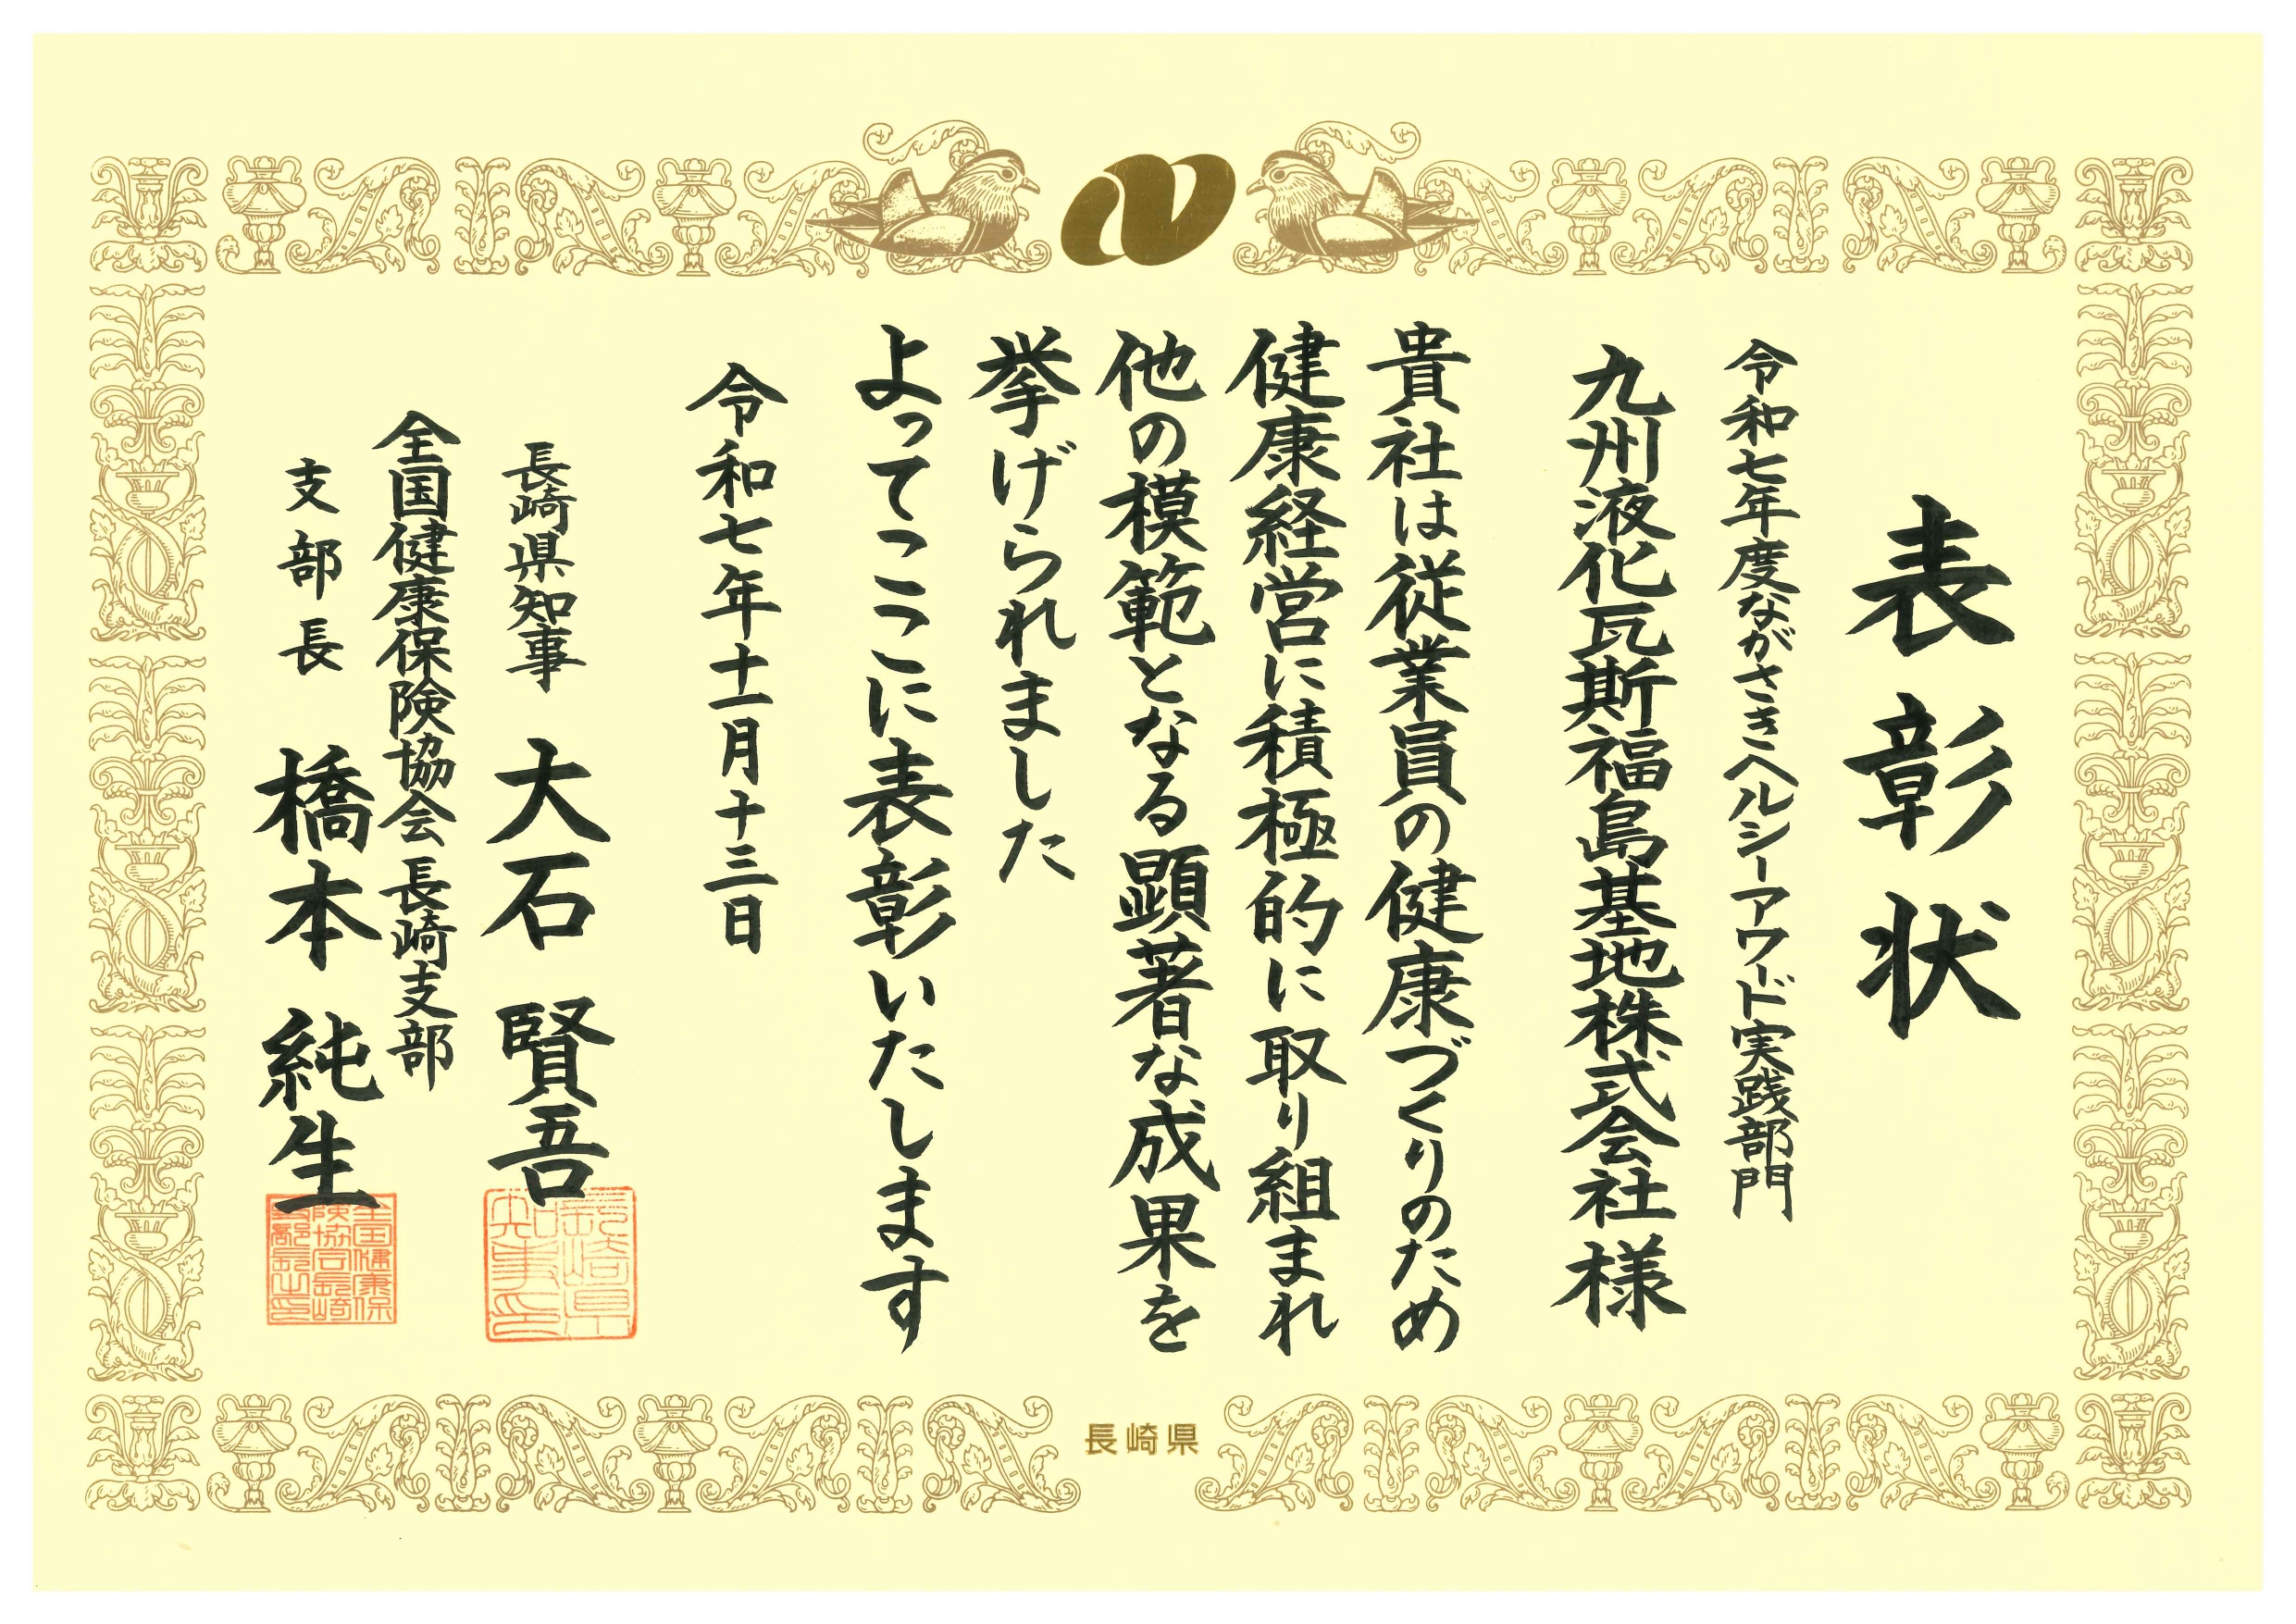 表彰状
令和七年度ながさきヘルシーアワード実践部門
九州液化瓦斯福島基地株式会社様
貴社は従業員の健康づくりのため
健康経営に積極的に取り組まれ
他の模範となる顕著な成果を
挙げられました
よってここに表彰いたします
令和七年十一月十三日
長崎県知事 大石賢吾
全国健康保険協会長崎支部
支部長 橋本純生
長崎県知事印
全国健康保険協会長崎支部長之印
長崎県